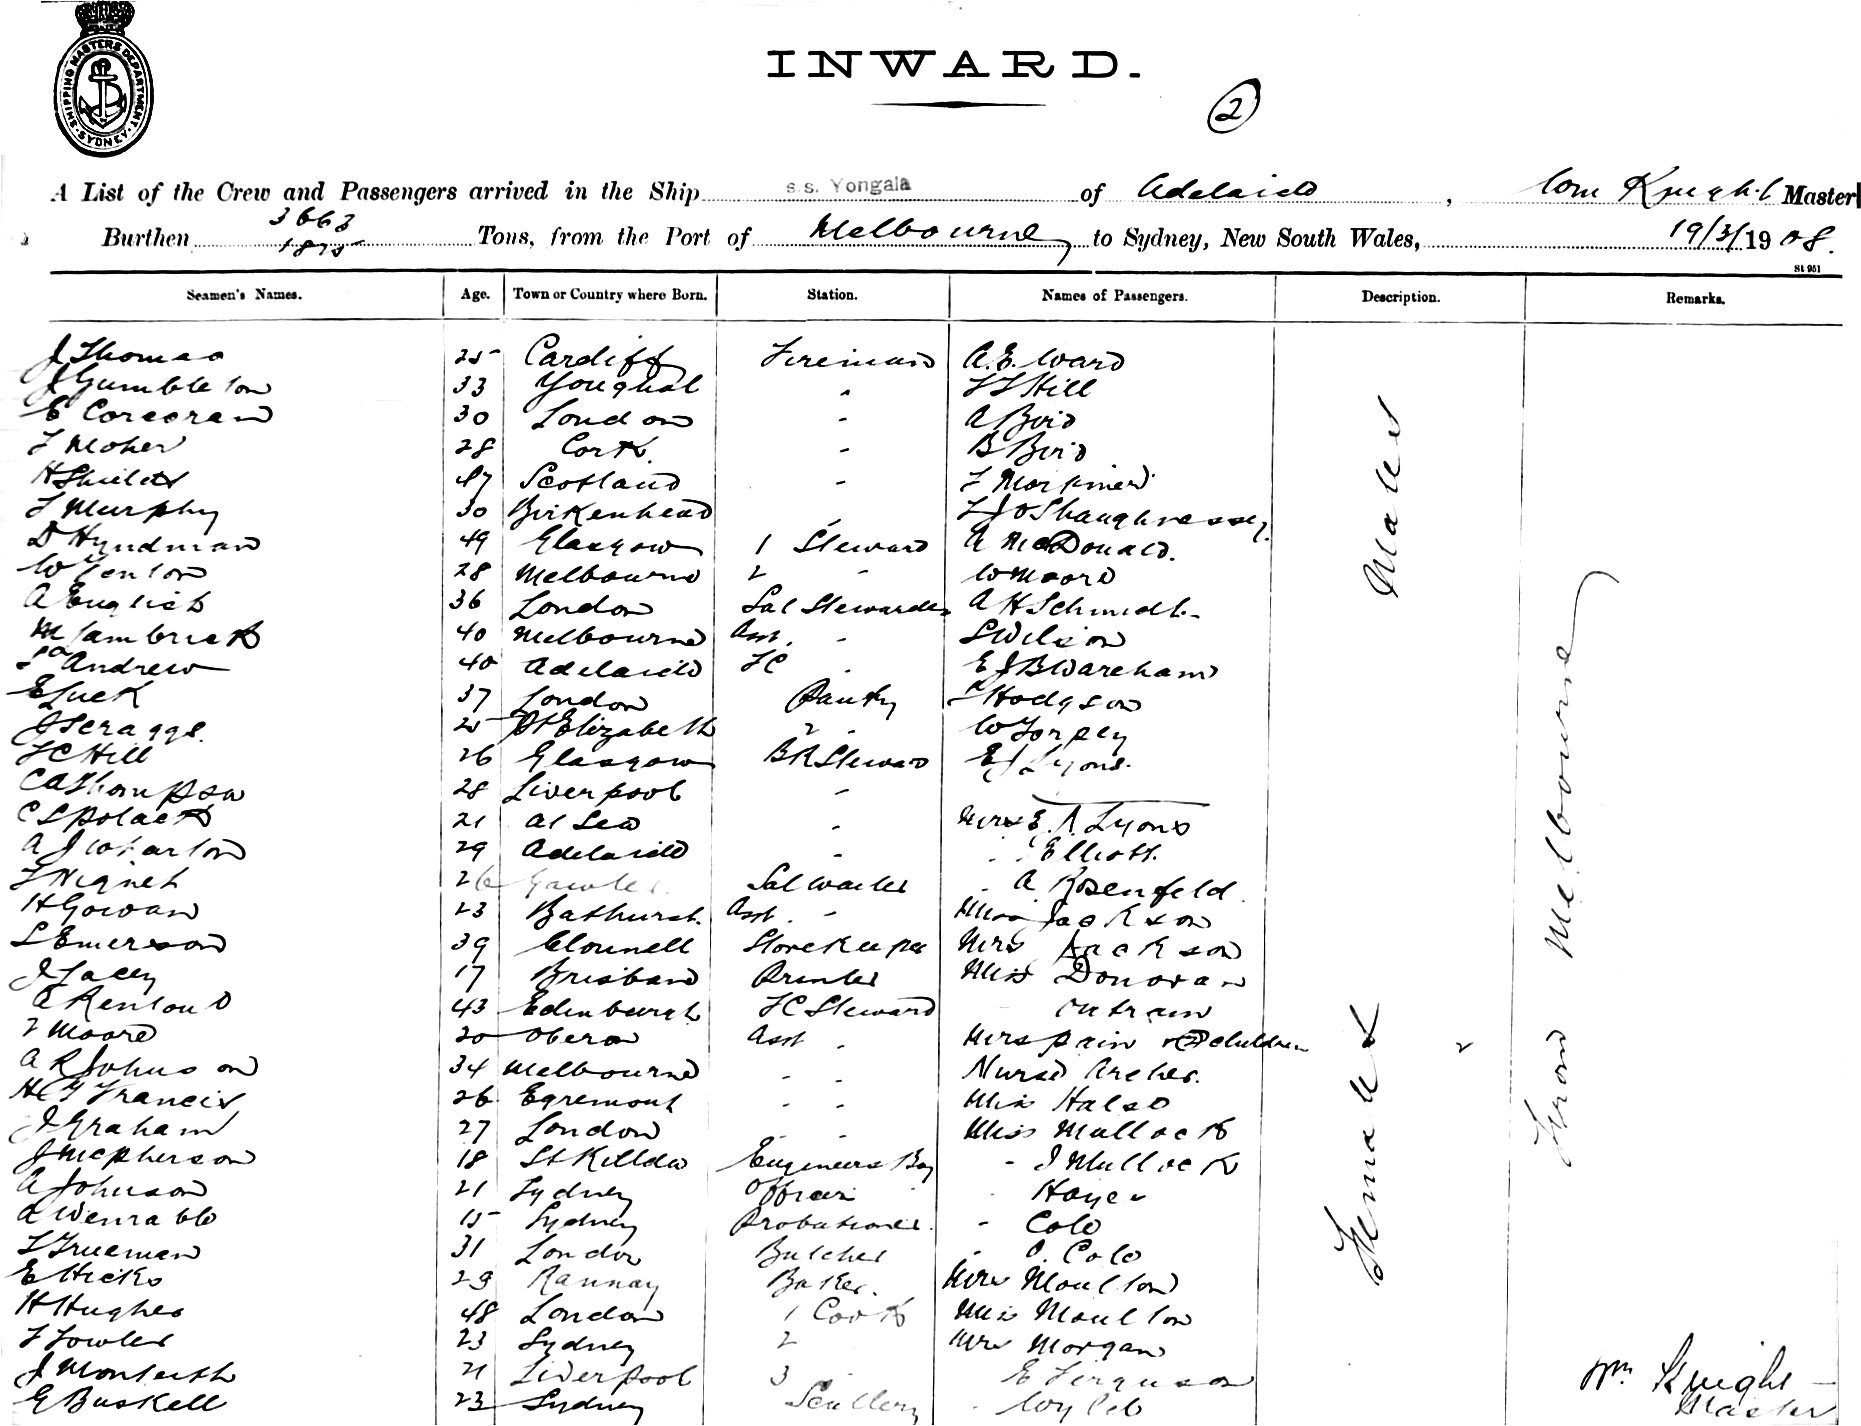 SHIPPING MASTERS DEPARTMENT · SYDNEY ·
INWARD.
2
A List of the Crew and Passengers arrived in the Ship s.s. Yongala of Adelaide, Wm Knight Master
Burthen 3663 1825 Tons, from the Port of Melbourne to Sydney, New South Wales, 19/3/1908.
St 951
Seamen's Names. Age. Town or Country where Born. Station. Names of Passengers. Description. Remarks.
J Thomas 25 Cardiff Fireman A.E. Ward
J Gumbleton 33 Youghal " Hill
E Corcoran 30 London " A Bird
T Moher 28 Cork. " B Bird
H Shields 47 Scotland " F Mortimer
T Murphy 30 Birkenhead " O'Shaughnessy
D Hyndman 49 Glasgow 1 Steward A McDonald.
W Fenton 28 Melbourne 2 " W Moore
A English 36 London Sal Stewardess A H Schmidt
M Lambrick 40 Melbourne Asst. " S Wilson
Andrew 40 Adelaide FC " E J B Wareham
E Luck 37 London Pantry Hodgson
J Scraggs. 25 Pt Elizabeth 2 " W Torpey
F C Hill 26 Glasgow B R Steward E J Lyons.
C A Thompson 28 Liverpool "
C S Polack 21 At Sea " Mrs E. A. Lyons
A J Wharton 29 Adelaide " " Elliott.
26 Gawler. Sal Waiter " A Rosenfeld.
H Gowan 23 Bathurst. Asst. " Miss Jackson
S Emerson 39 Clonmell Storekeeper Mrs Jackson
J Lacey 17 Brisbane Printer Miss Donovan
A Rentoul 43 Edinburgh FC Steward " Outram
T Moore 20 Oberon Asst " Mrs Pain & 2 children
A R Johnson 34 Melbourne " " Nurse Archer.
H G Francis 26 Egremont " " Miss Halse
J Graham 27 London " " Miss Mullock
J McPherson 18 St Kilda Engineers Boy " J Mullock
A Johnson 21 Sydney Officers " " Hayes
A Venrable 15 Sydney Probationer. " Cole
T Trueman 31 London Butcher " O. Cole
E Hicks 29 Baker. Mrs Moulton
H Hughes 48 London 1 Cook Miss Moulton
F Fowler 23 Sydney 2 Mrs Morgan
J Monteith 21 Liverpool 3 E Ferguson
G Buskell 23 Sydney Scullery
Males
Females
2
From Melbourne
Wm Knight
Master